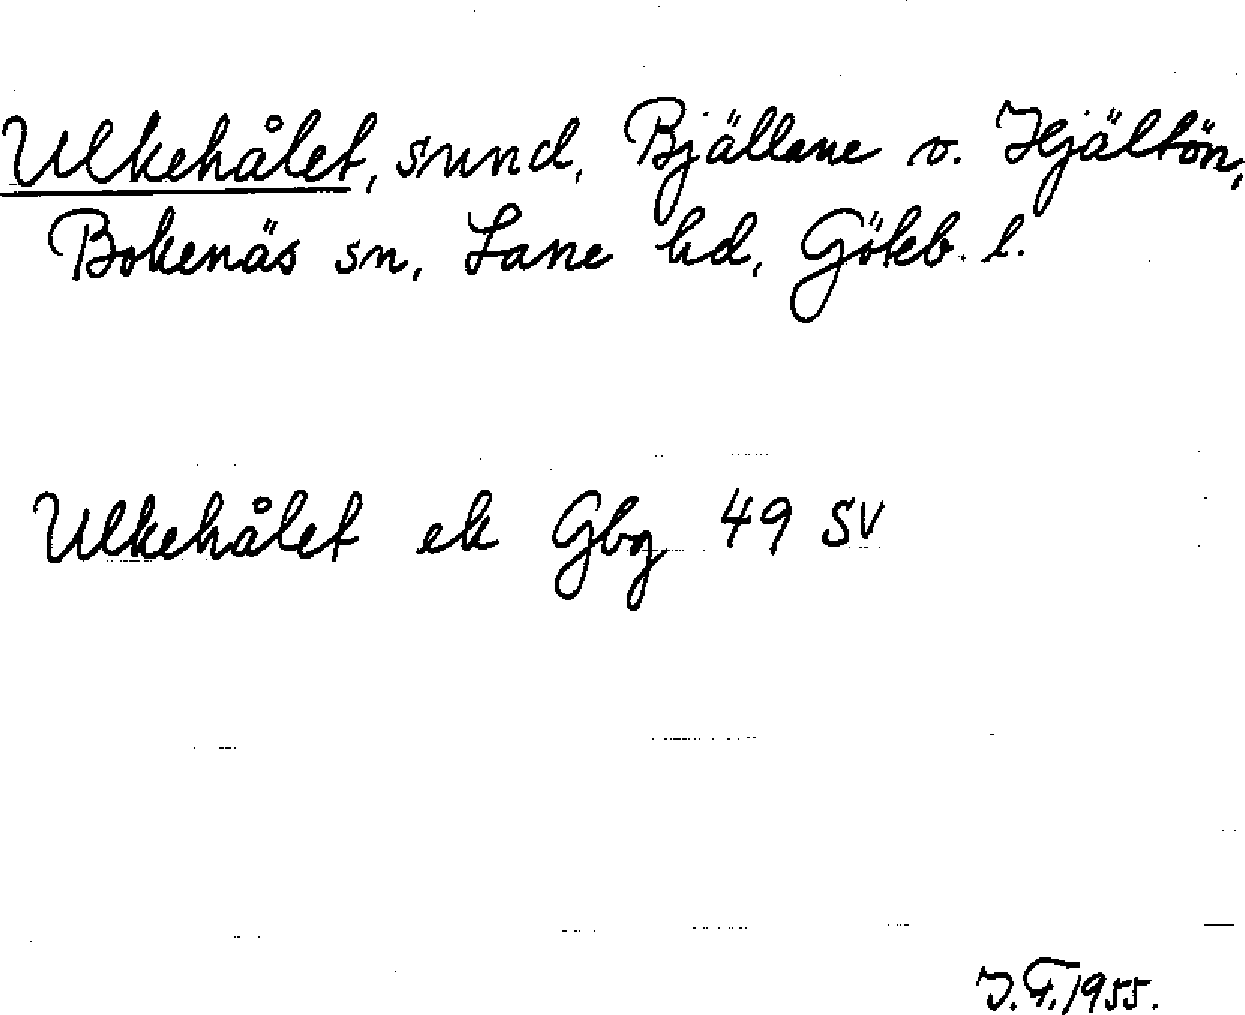 Ulkehålet, sund, Bjällane v. Hjältön,
Bokenäs sn, Lane hd, Gökb. l.
Ulkehålet ek Gbg 49 SV
J.F. 1955.